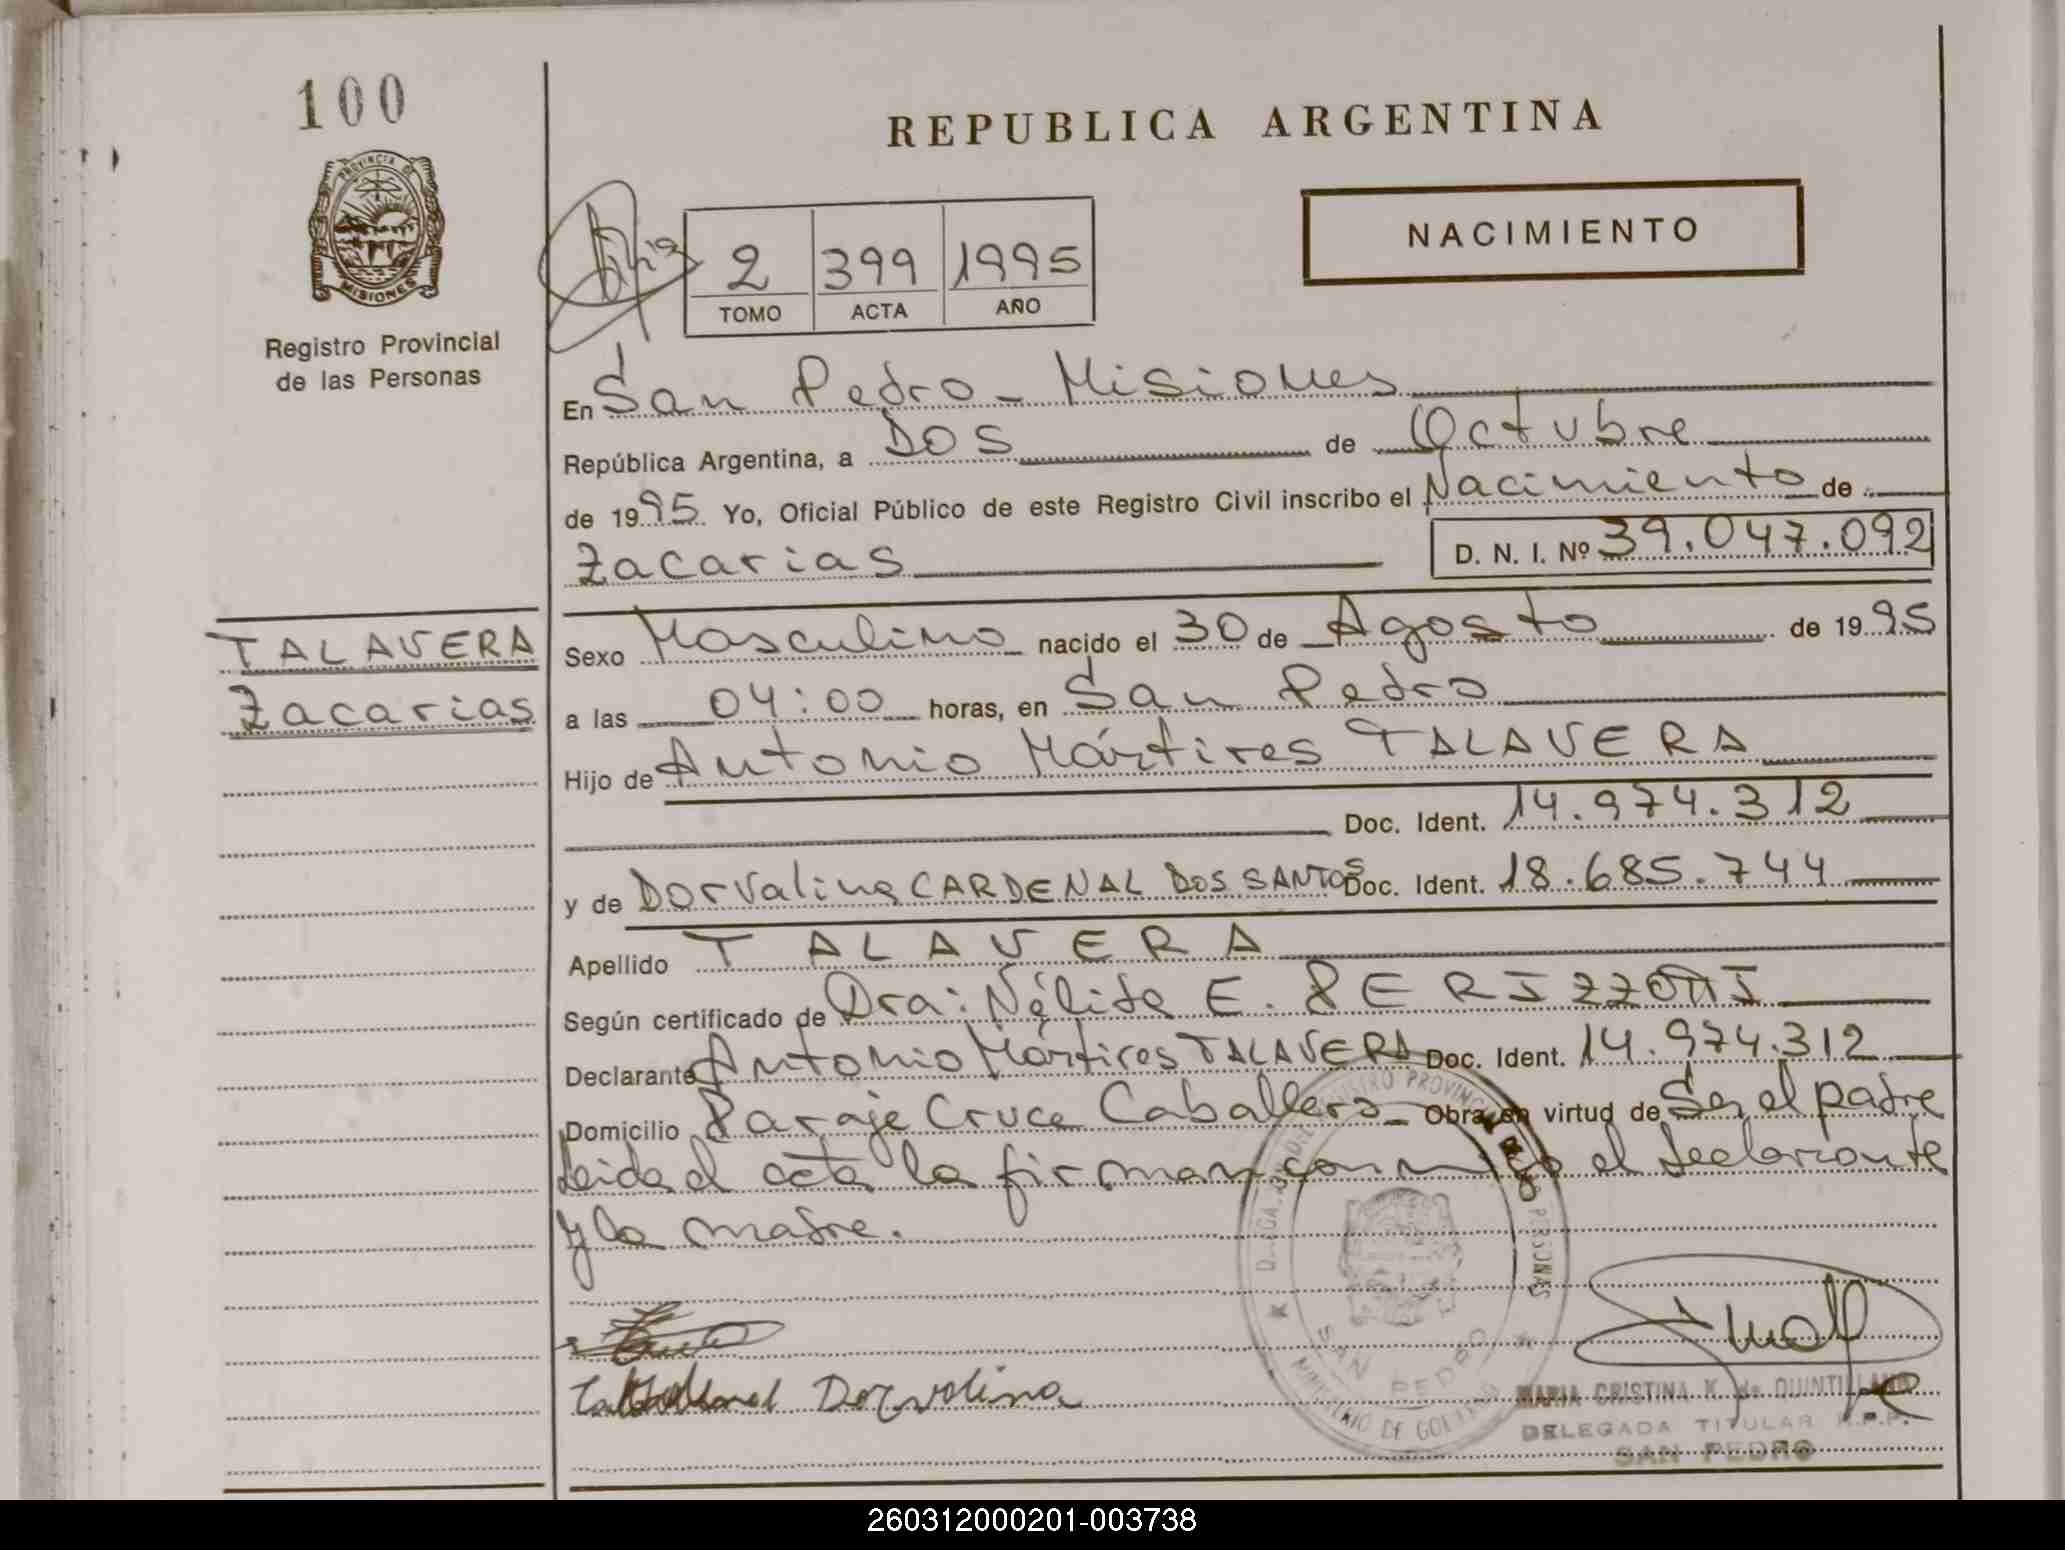 100
REPUBLICA ARGENTINA
PROVINCIA DE
MISIONES
NACIMIENTO
2 399 1995
TOMO ACTA AÑO
Registro Provincial
de las Personas
En San Pedro - Misiones
República Argentina, a DOS de Octubre
de 1995. Yo, Oficial Público de este Registro Civil inscribo el Nacimiento de
Zacarias D. N. I. Nº 39.047.092
TALAVERA
Zacarias
Sexo Masculino nacido el 30 de Agosto de 1995
a las 04:00 horas, en San Pedro
Hijo de Antonio Mártires TALAVERA
Doc. Ident. 14.974.312
y de Dorvalina CARDENAL DOS SANTOS Doc. Ident. 18.685.744
Apellido TALAVERA
Según certificado de Dra: Nélida E. PERIZZOTTI
Declarante Antonio Mártires TALAVERA Doc. Ident. 14.974.312
Domicilio Paraje Cruce Caballero - Obra en virtud de Ser el padre
Leida el acta la firman conmigo el declarante
y la madre.
Dorvalina
SAN PEDRO
MARIA CRISTINA K. de QUINTILLANA
DELEGADA TITULAR R.P.P.
SAN PEDRO
260312000201-003738